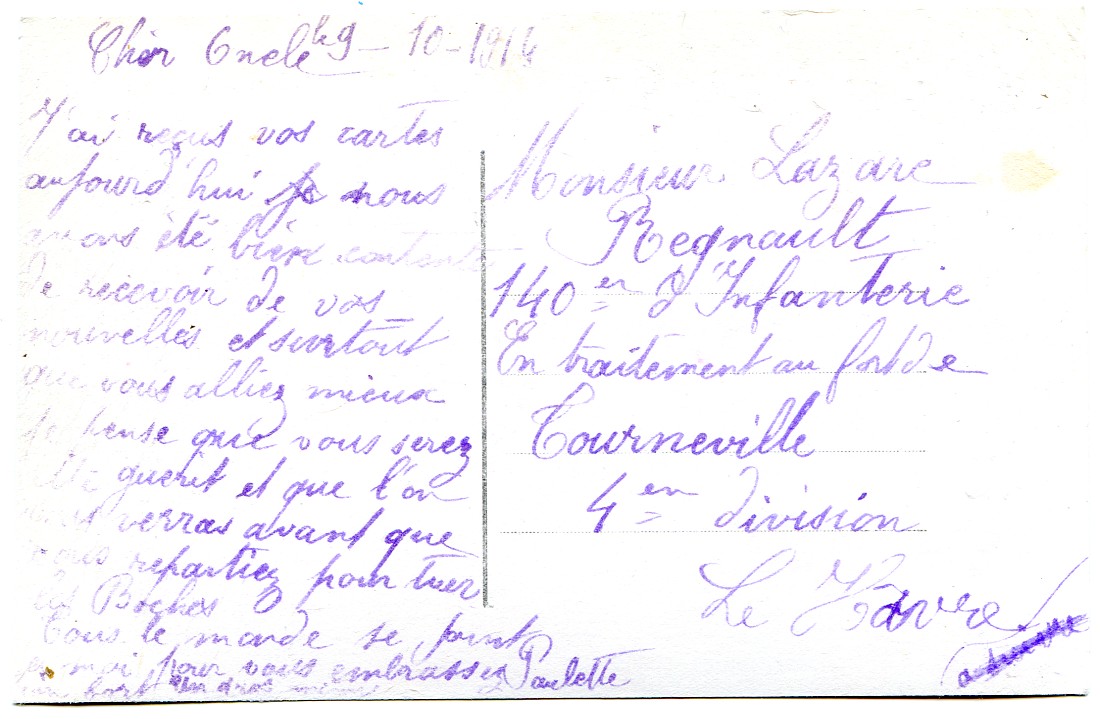 Cher Oncle le 9-10-1914
J'ai reçus vos cartes
aujourd'hui je nous
avons été bien contente
de recevoir de vos
nouvelles et surtout
que vous alliez mieux
Je pense que vous serez
vite guerit et que l'on
vous verras avant que
vous repartiez pour tuer
les Boches
Tous le monde se joint
a moi pour vous embrasser
Paulette
Monsieur Lazare
Regnault
140 en d'Infanterie
En traitement au fort de
Tourneville
4 en division
Le Havre